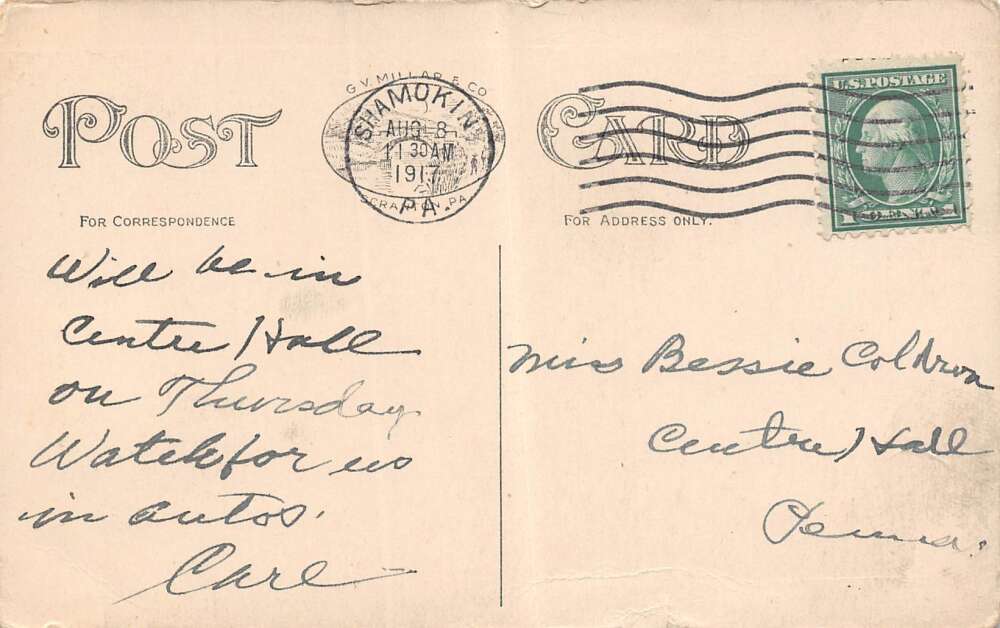 POST CARD
G. V. MILLAR & CO.
SCRANTON, PA.
SHAMOKIN
AUG 8
11 30 AM
1917
PA.
U.S. POSTAGE
FOR CORRESPONDENCE
FOR ADDRESS ONLY.
Will be in
Centre Hall
on Thursday
Watch for us
in autos.
Carl
Miss Bessie Coldron
Centre Hall
Penna.